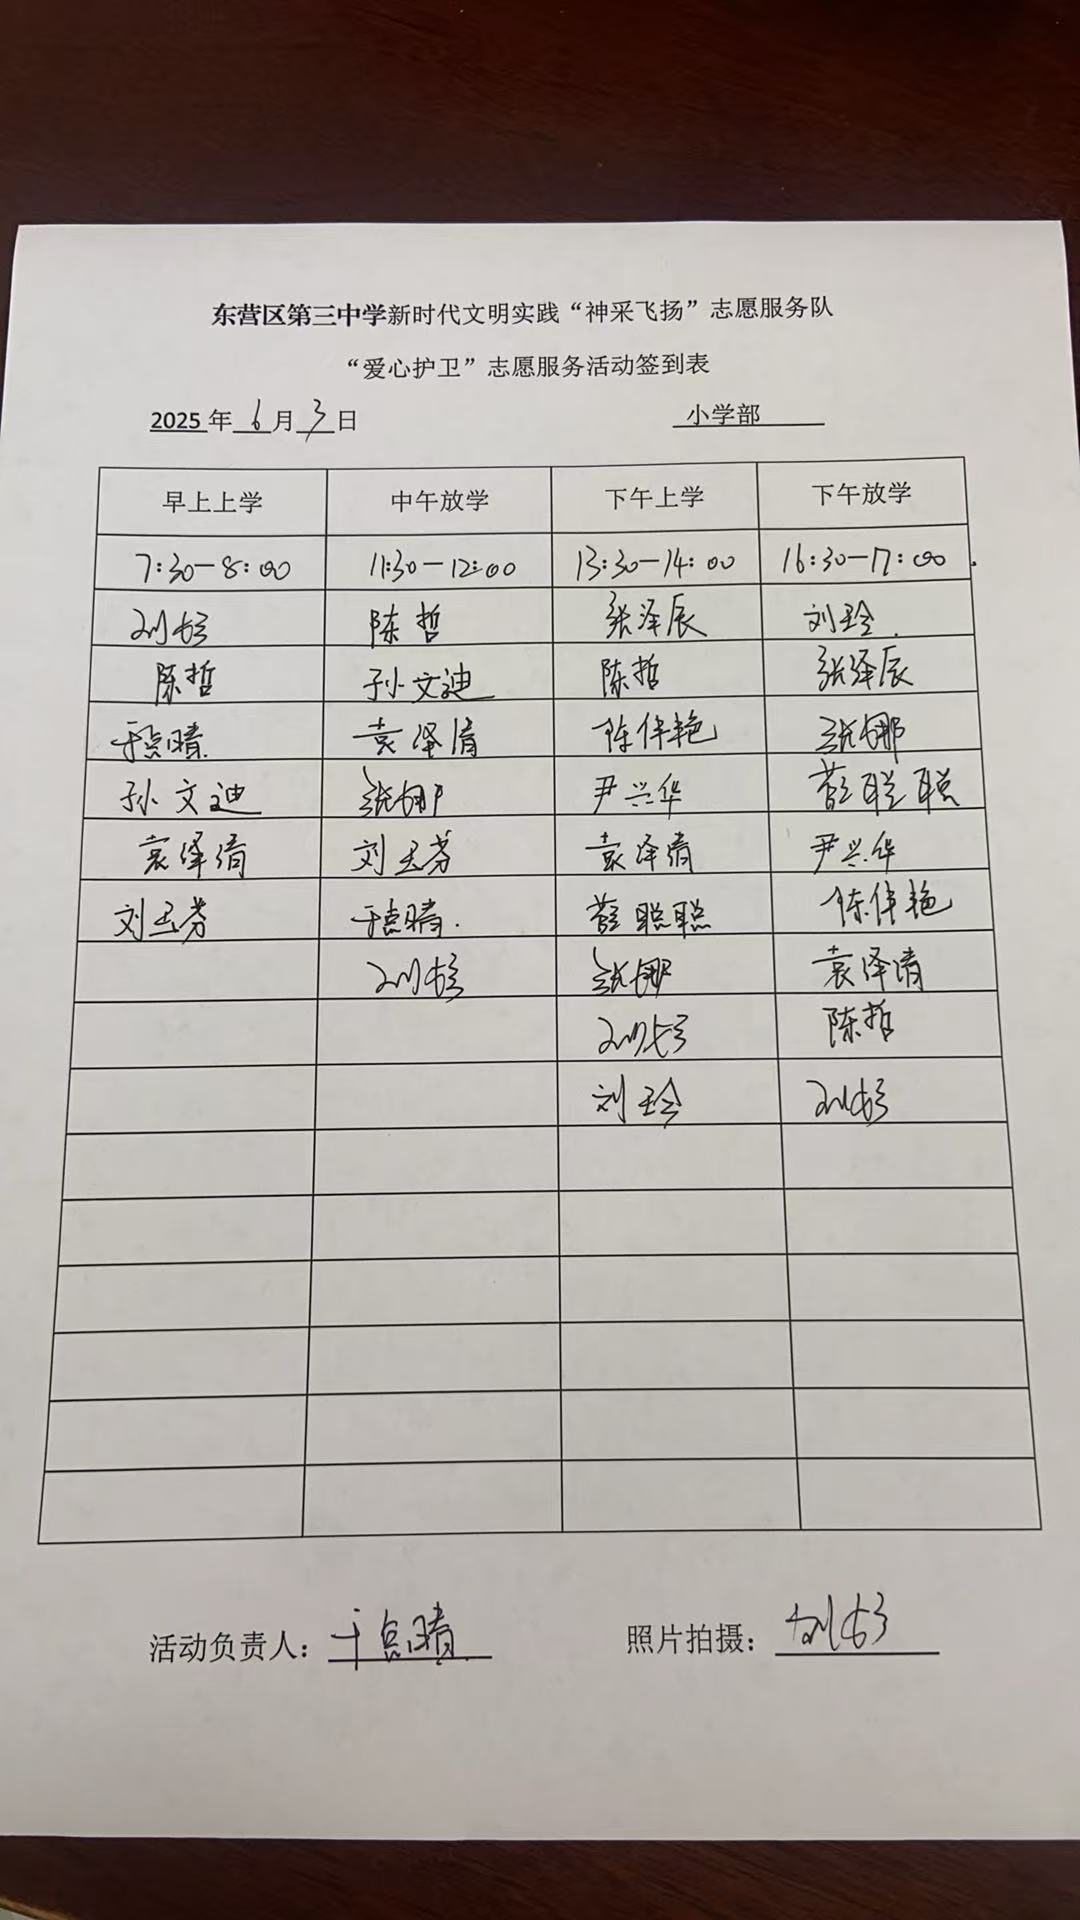 东营区第三中学新时代文明实践“神采飞扬”志愿服务队
“爱心护卫”志愿服务活动签到表
2025年 6 月 3 日 小学部
早上上学 中午放学 下午上学 下午放学
7:30-8:00 11:30-12:00 13:30-14:00 16:30-17:00
刘 陈哲 张泽辰 刘玲
陈哲 孙文迪 陈哲 张泽辰
于点晴 袁泽清 陈伟艳 张娜
孙文迪 张娜 尹兴华 聪聪
袁泽清 刘玉芬 袁泽清 尹兴华
刘玉芬 于点晴 聪聪 陈伟艳
刘 张娜 袁泽清
刘 陈哲
刘玲 刘
活动负责人：于点晴 照片拍摄：刘